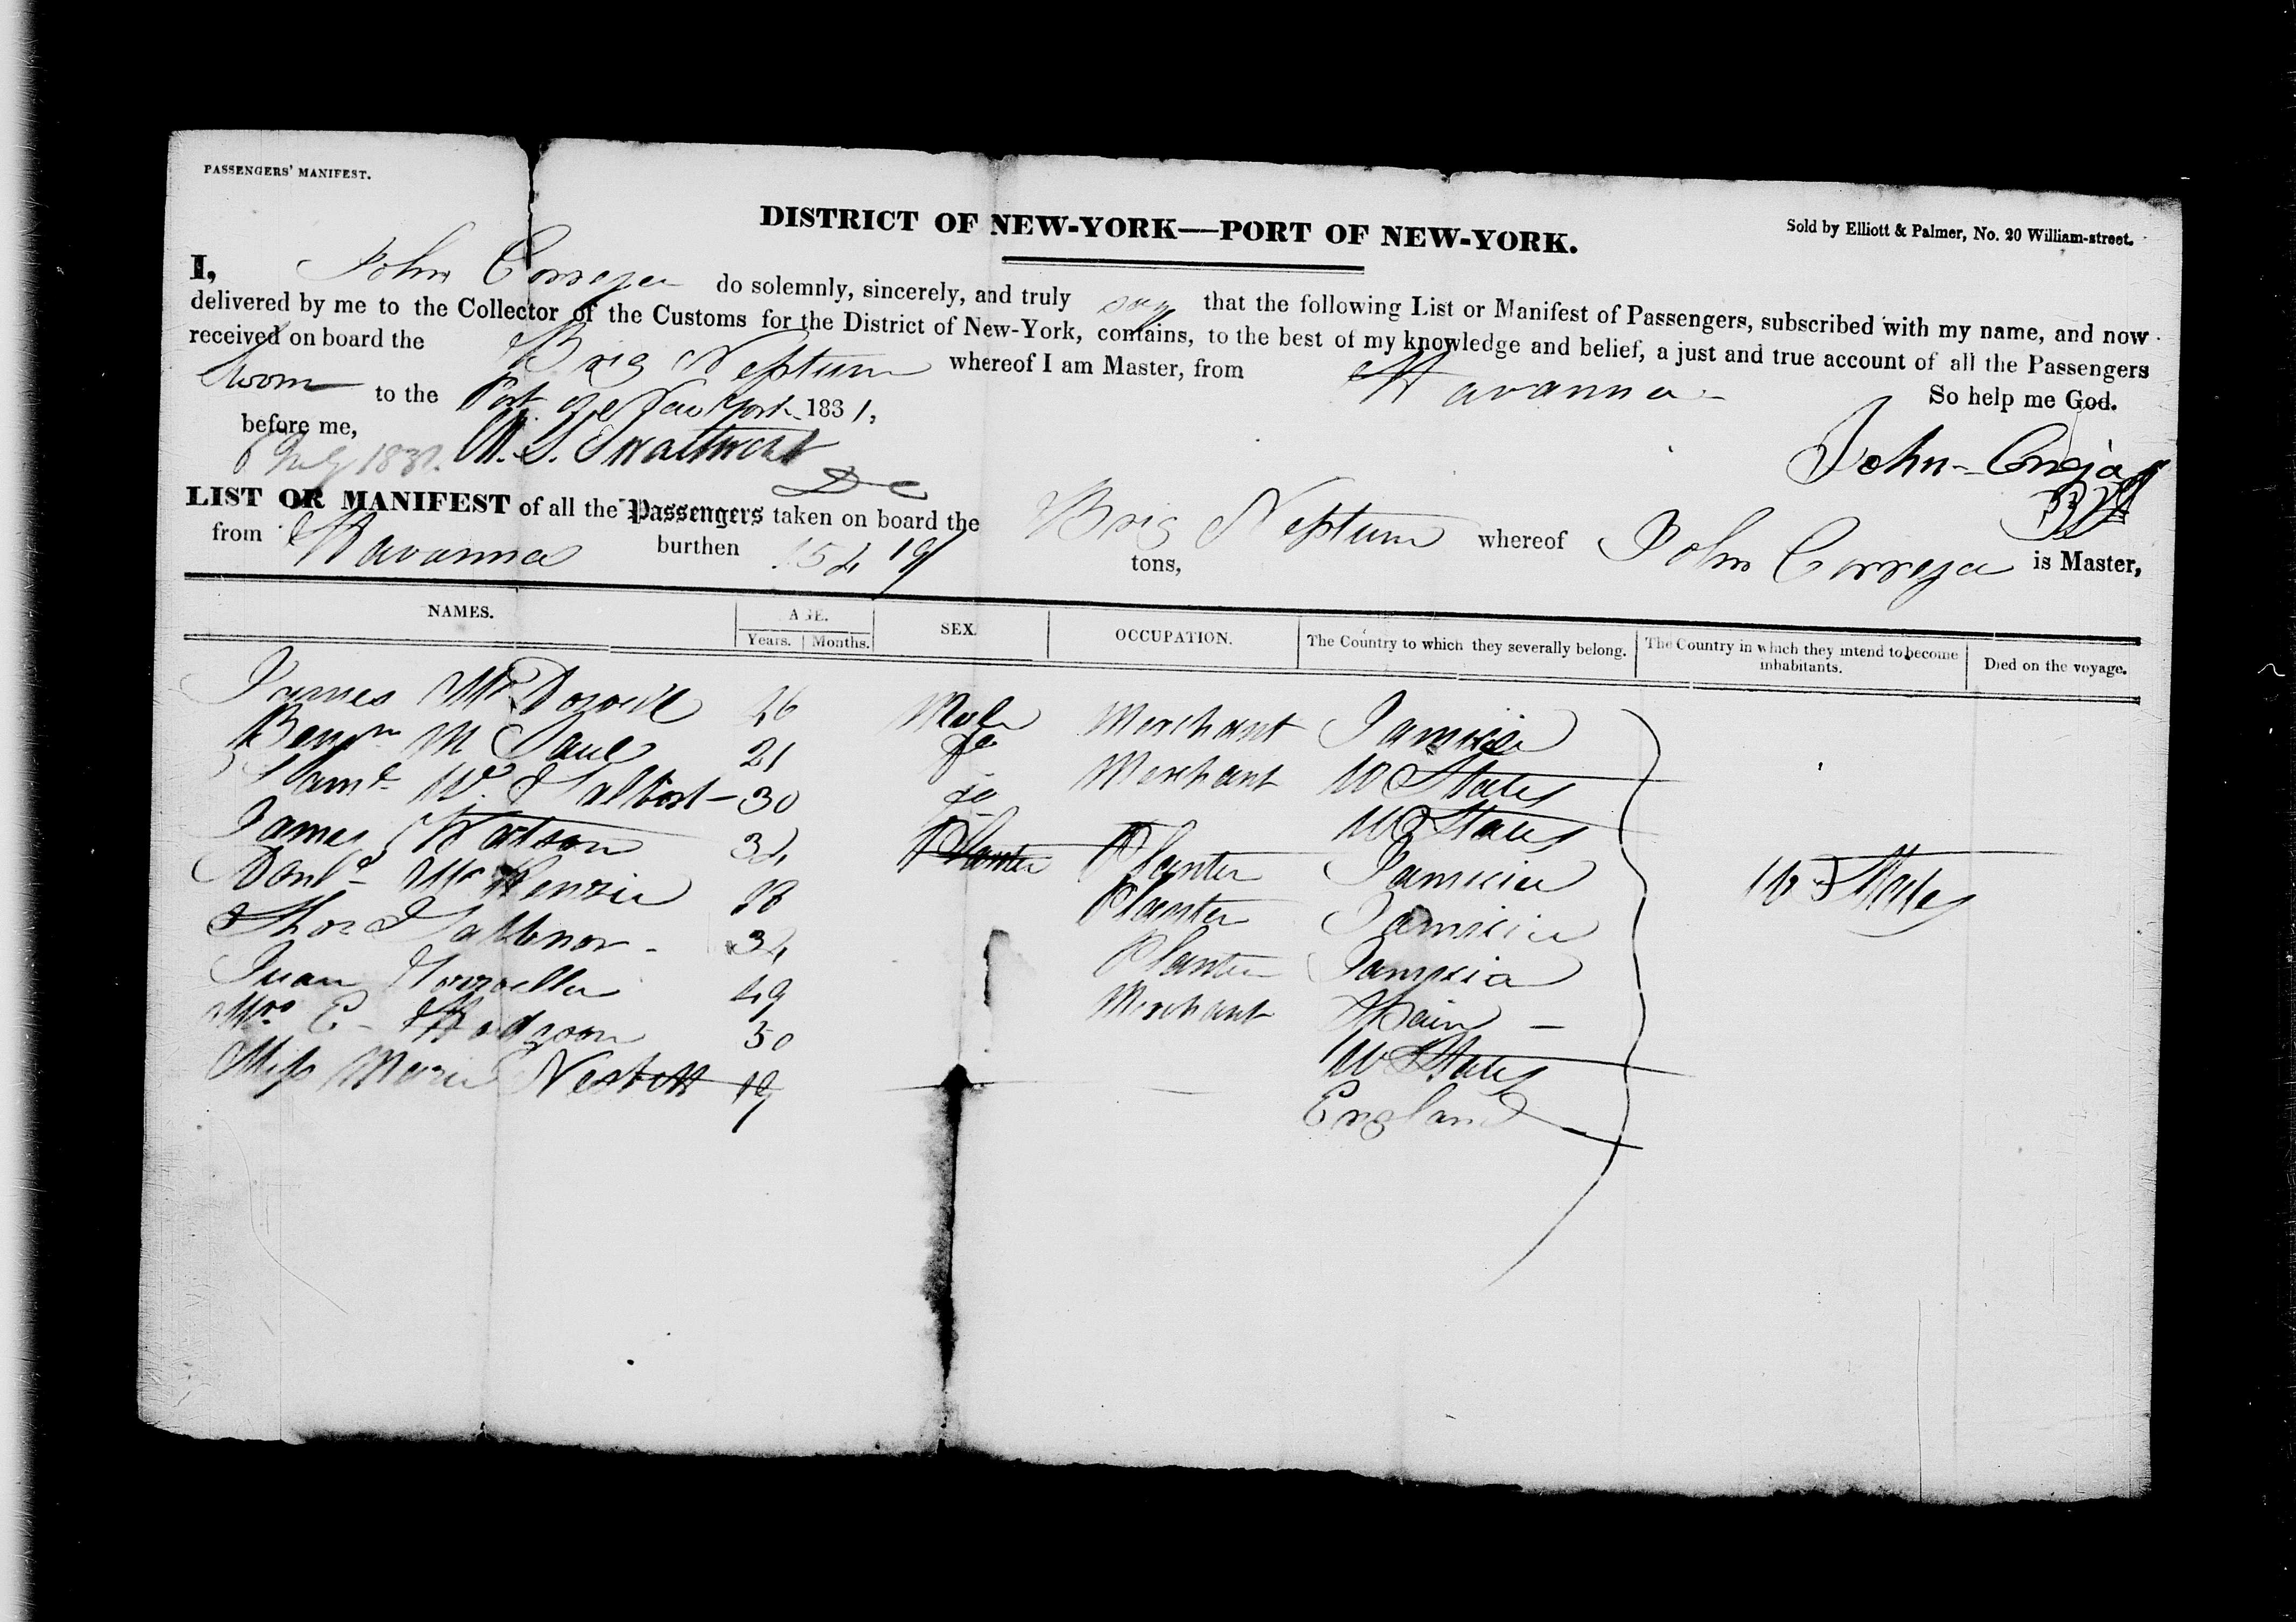 PASSENGERS' MANIFEST.
DISTRICT OF NEW-YORK—PORT OF NEW-YORK.
Sold by Elliott & Palmer, No. 20 William-street.
I, John Correja do solemnly, sincerely, and truly say that the following List or Manifest of Passengers, subscribed with my name, and now
delivered by me to the Collector of the Customs for the District of New-York, contains, to the best of my knowledge and belief, a just and true account of all the Passengers
received on board the Brig Neptune whereof I am Master, from Havanna
Sworn to the Port of New York 1831, So help me God.
before me, John Correja
6 July 1831.
LIST OR MANIFEST of all the Passengers taken on board the Brig Neptune whereof John Correja is Master,
from Havanna burthen 154 tons,
NAMES. AGE. SEX. OCCUPATION. The Country to which they severally belong. The Country in which they intend to become inhabitants. Died on the voyage.
Years. Months.
James Mc 46 Male Merchant Jamicia
Benjn M 21 do Merchant U States
Saml W. Talbot 30 do U States
James Watson 34 Planter Planter Jamicia
Donld McKenzie 28 Planter Jamicia U States
Thos 34 Planter Jamicia
Juan 49 Merchant Spain
Mrs E Hodgson 50 U States
Miss Maria Nesbett 19 England